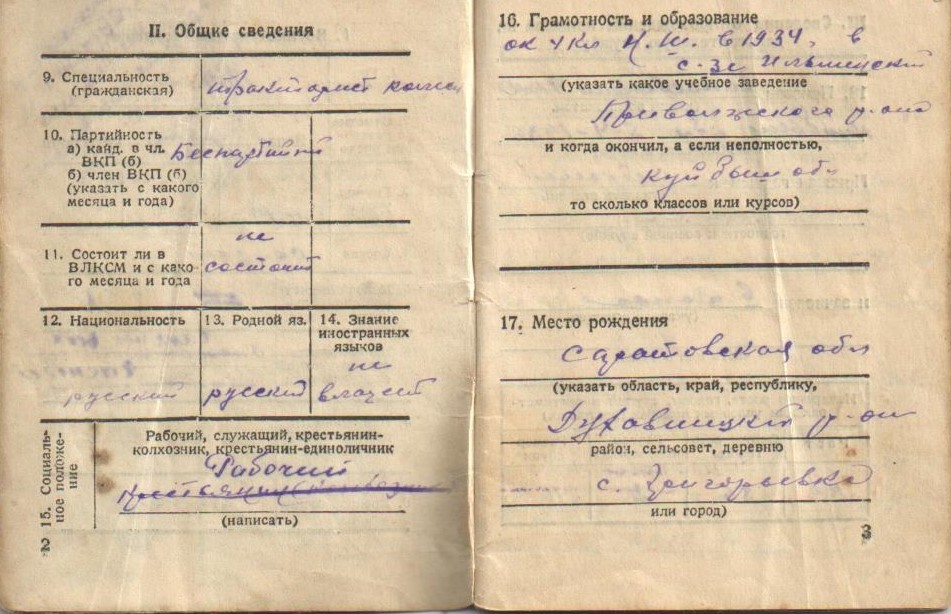 II. Общие сведения
9. Специальность
(гражданская)
тракторист
10. Партийность
а) канд. в чл.
ВКП (б)
б) член ВКП (б)
(указать с какого
месяца и года)
Беспартийный
11. Состоит ли в
ВЛКСМ и с како
го месяца и года
не
состоит
12. Национальность
русский
13. Родной яз.
русский
14. Знание
иностранных
языков
не
владеет
15. Социаль-
ное положе-
ние
Рабочий, служащий, крестьянин-
колхозник, крестьянин-единоличник
Рабочий
(написать)
2
16. Грамотность и образование
ок 4 кл Н. Ш. в 1934 в
с-зе Ильменский
(указать какое учебное заведение
Приволжского р-она
и когда окончил, а если неполностью,
Куйбыш обл
то сколько классов или курсов)
17. Место рождения
Саратовская обл
(указать область, край, республику,
Духовницкий р-он
район, сельсовет, деревню
с. Григорьевка
или город)
3